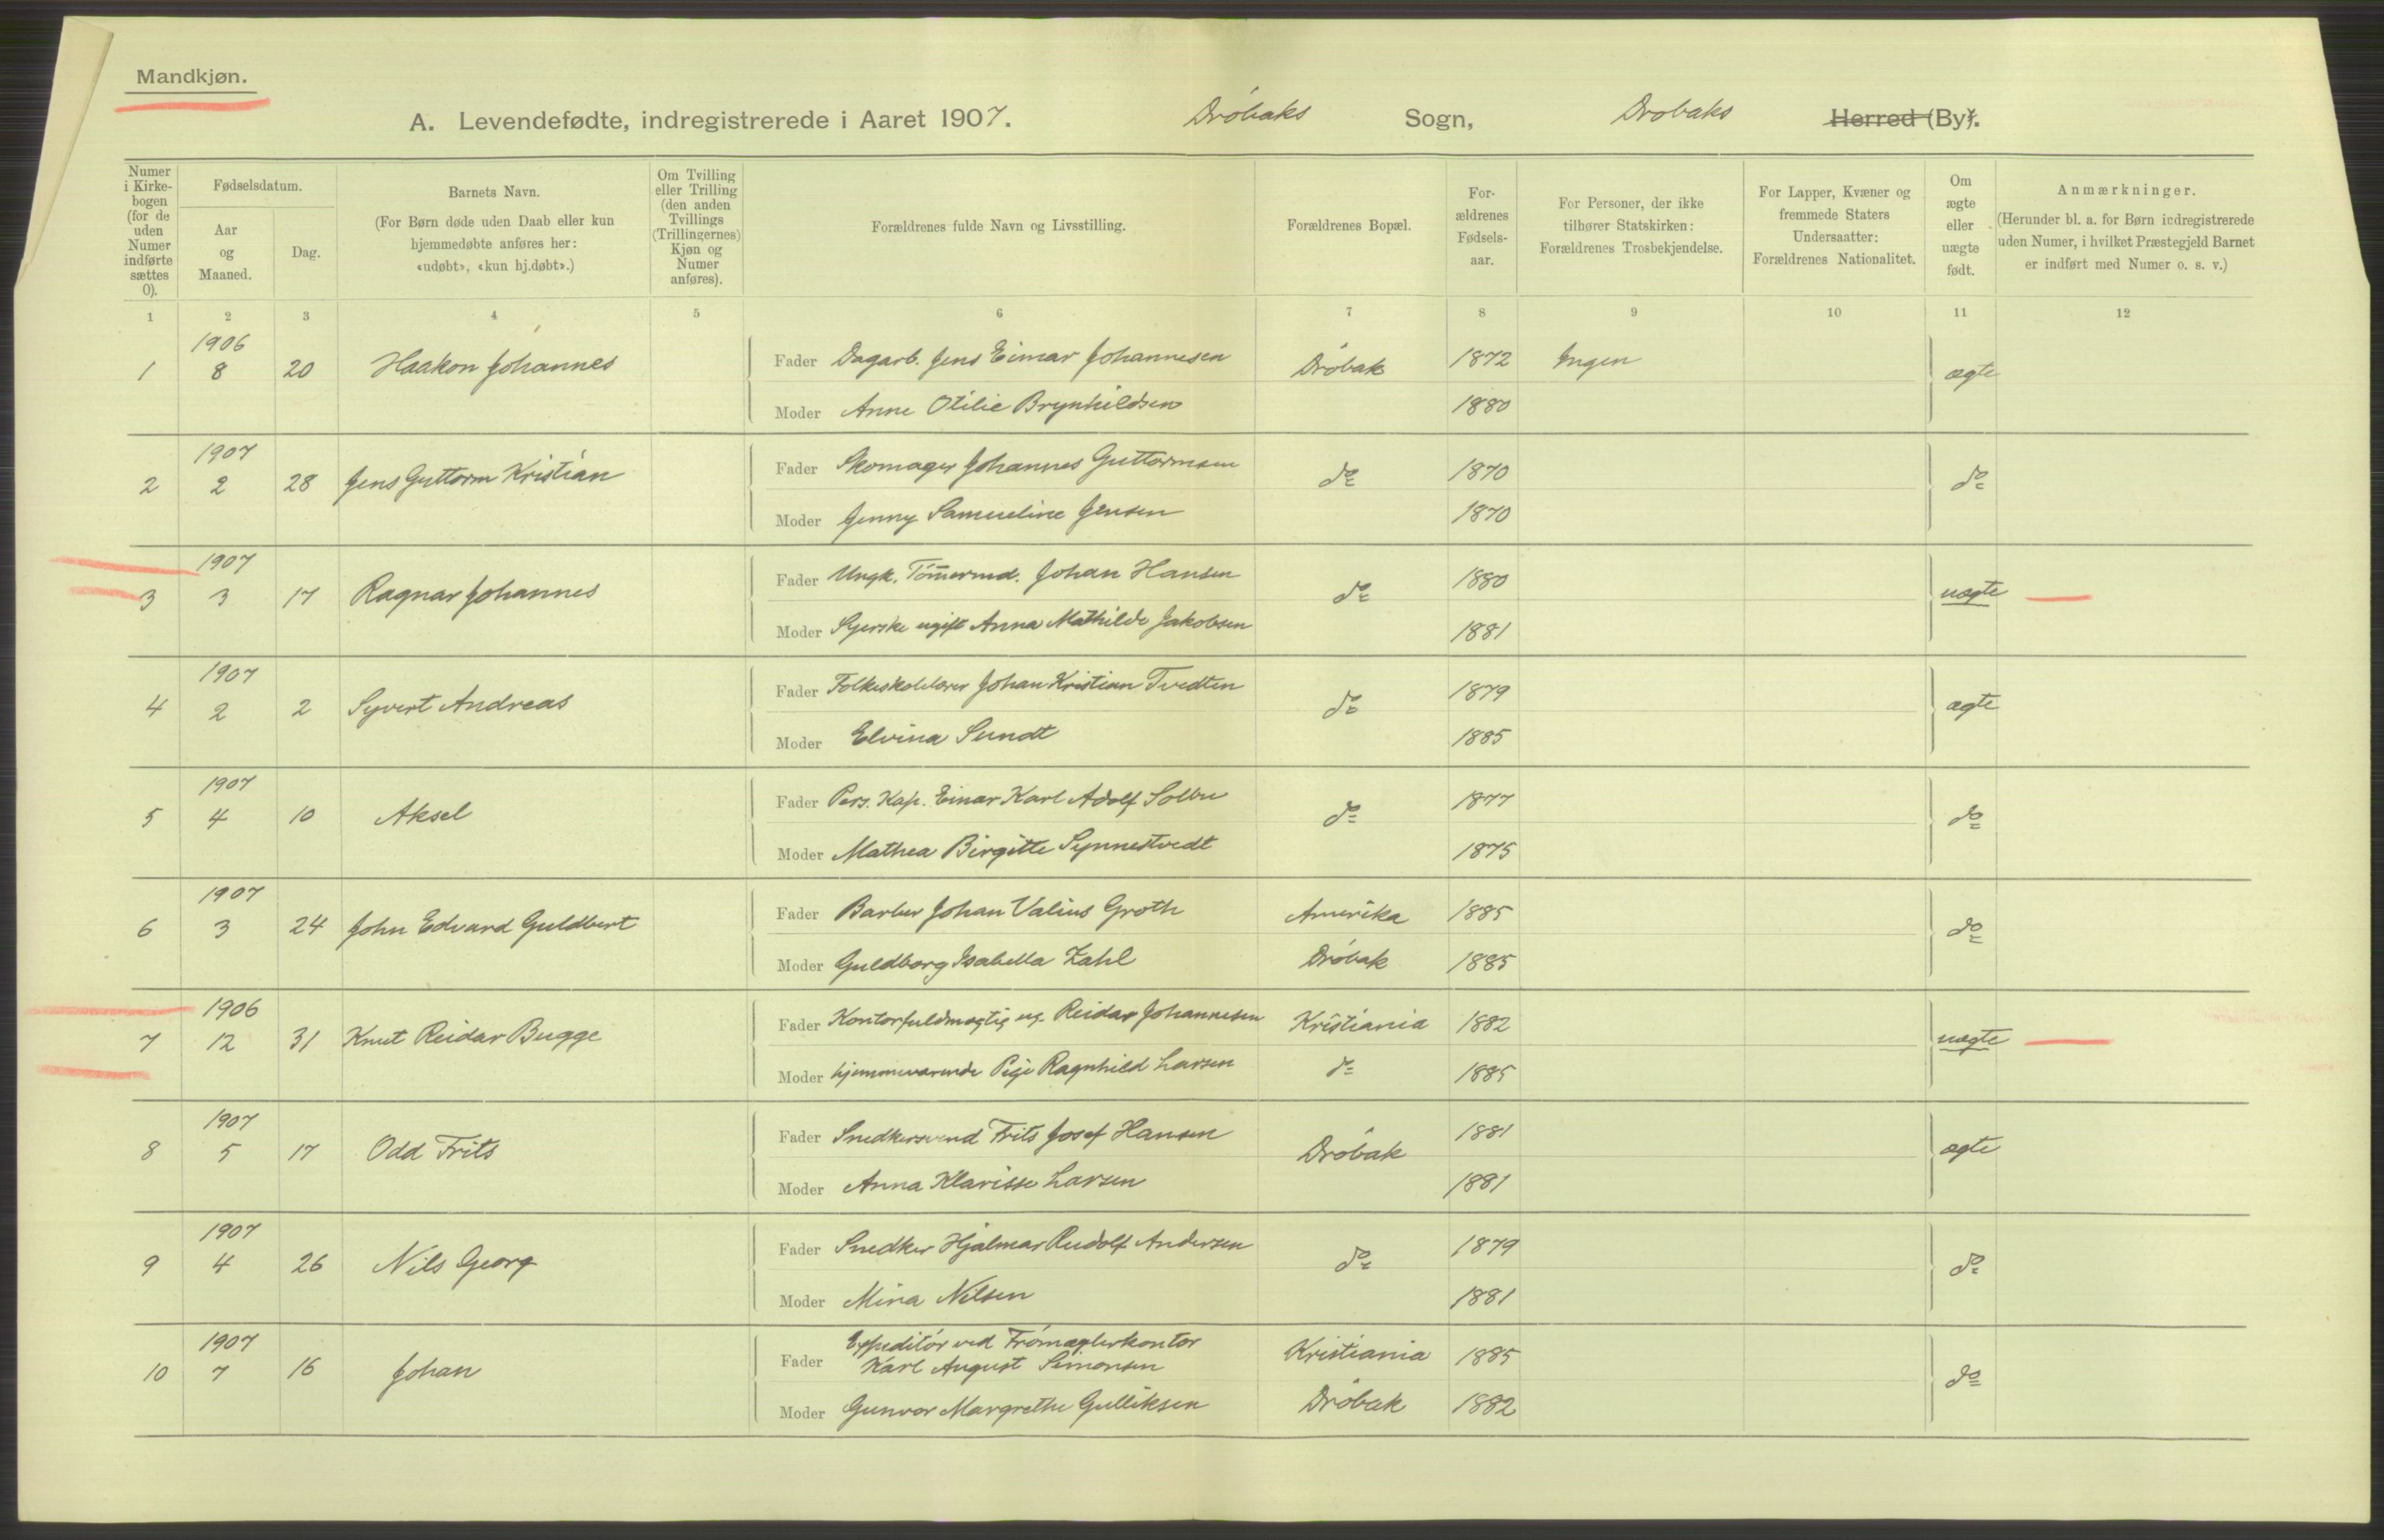 Mandkjøn.
A. Levendefødte, indregistrerede i Aaret 1907. Drøbaks Sogn, Drøbaks Herred (By).
Numer i Kirke-bogen (for de uden Numer indførte sættes 0).
Fødselsdatum.
Aar og Maaned.
Dag.
Barnets Navn.
(For Børn døde uden Daab eller kun hjemmedøbte anføres her: «udøbt», «kun hj.døbt».)
Om Tvilling eller Trilling (den anden Tvillings (Trillingernes) Kjøn og Numer anføres).
Forældrenes fulde Navn og Livsstilling.
Forældrenes Bopæl.
For-ældrenes Fødsels-aar.
For Personer, der ikke tilhører Statskirken: Forældrenes Trosbekjendelse.
For Lapper, Kvæner og fremmede Staters Undersaatter: Forældrenes Nationalitet.
Om ægte eller uægte født.
Anmærkninger.
(Herunder bl. a. for Børn indregistrerede uden Numer, i hvilket Præstegjeld Barnet er indført med Numer o. s. v.)
1 2 3 4 5 6 7 8 9 10 11 12
1906
1 8 20 Haakon Johannes Fader Dagarb. Jens Eimar Johannesen Drøbak 1872 Ingen ægte
Moder Anne Otilie Brynhildsen 1880
1907
2 2 28 Jens Guttorm Kristian Fader Skomager Johannes Guttormsen do 1870 do
Moder Jenny Samueline Jensen 1870
1907
3 3 17 Ragnar Johannes Fader Ungk. Tømermd. Johan Hansen do 1880 uægte
Moder Syerske ugift Anna Mathilde Jakobsen 1881
1907
4 2 2 Syvert Andreas Fader Folkeskolelærer Johan Kristian Tvedten do 1879 ægte
Moder Elvina Sundt 1885
1907
5 4 10 Aksel Fader Pers. Kap. Einar Karl Adolf Solbu do 1877 do
Moder Mathea Birgitte Synnestvedt 1875
1907
6 3 24 John Edvard Guldbert Fader Barber Johan Valius Groth Amerika 1885 do
Moder Guldborg Isabella Zahl Drøbak 1885
1906
7 12 31 Knut Reidar Bugge Fader Kontorfuldmægtig ug. Reidar Johannesen Kristiania 1882 uægte
Moder hjemmeværende Pige Ragnhild Larsen do 1885
1907
8 5 17 Odd Frits Fader Snedkersvend Frits Josef Hansen Drøbak 1881 ægte
Moder Anna Klarisse Larsen 1881
1907
9 4 26 Nils Georg Fader Snedker Hjalmar Rudolf Andersen do 1879 do
Moder Mina Nilsen 1881
1907
Expeditør ved Frømæglerkontor
10 7 16 Johan Fader Karl August Simonsen Kristiania 1885 do
Moder Gunvor Margrethe Gulliksen Drøbak 1882